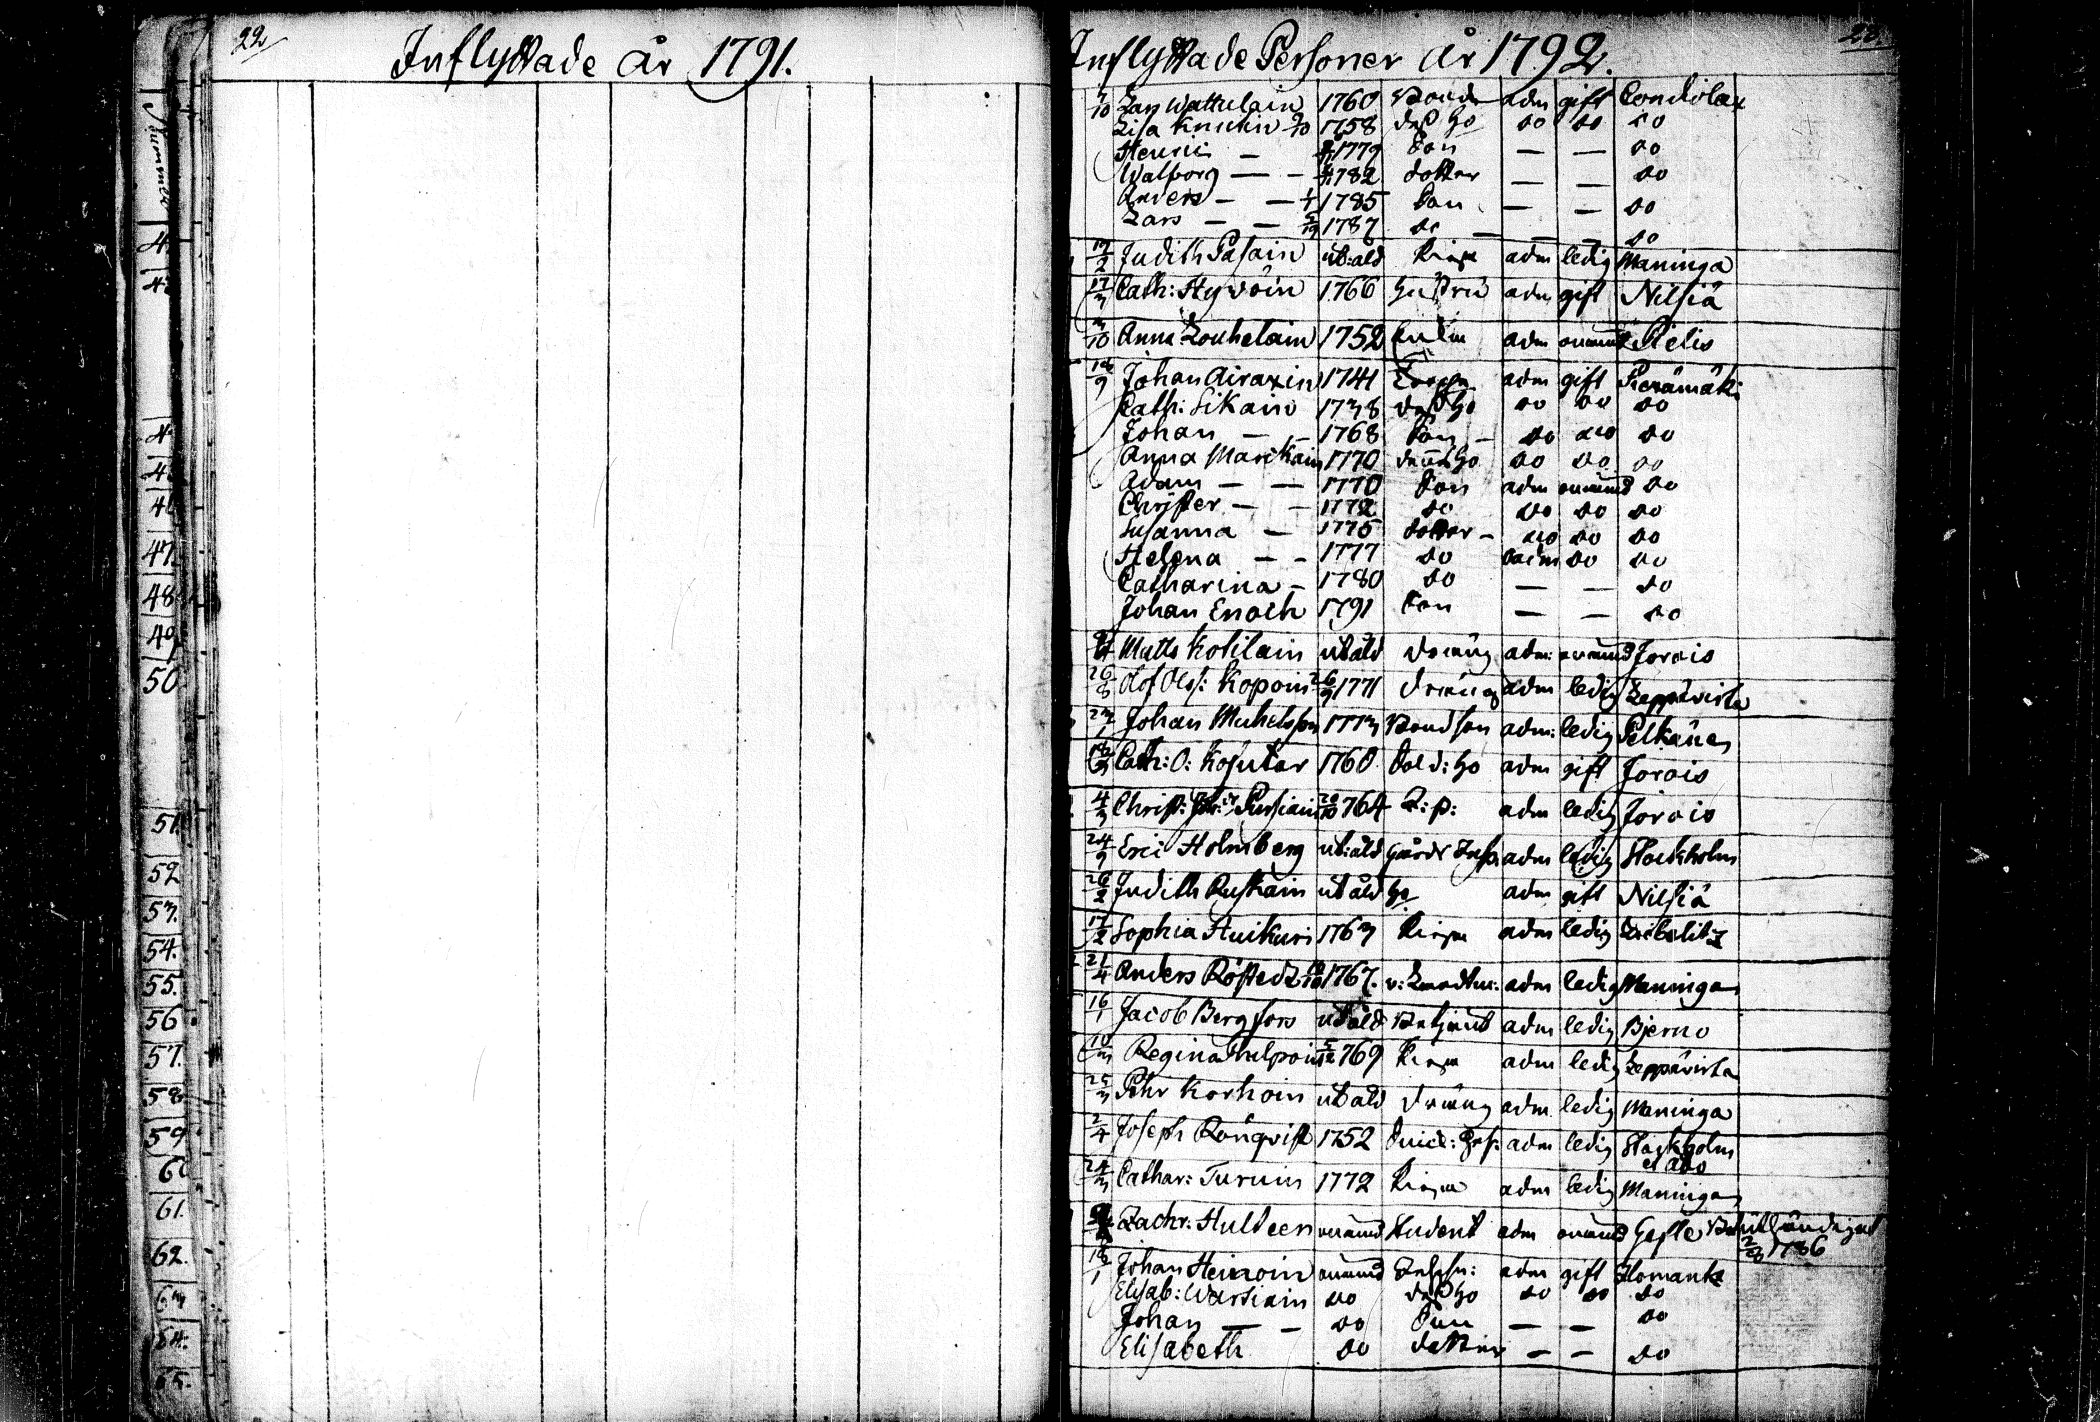 22
Inflyttade År 1791.
Nummer
47.
48
49
50
51.
52
53.
54.
55.
56
57.
58
59
60
61.
62.
63
64.
65.
Inflyttade Personer År 1792.
7/10 Lars Wattulain 1760 Bonde adm gift Condolax
Lisa 1758 dess Ho do do do
Henric — 1779 Son — — do
Walborg — — 1782 dotter — — do
Anders — — 1785 Son — — do
Lars — — 1787 do — — do
17/2 Judith Pasain ut: ald Piga adm ledig Maninga
17/3 Cath: Hyvöin 1766 Hustru adm gift Nilsiä
3/10 Anna Louhelain 1752 Enka adm Pielis
Johan Airaxin 1741 adm gift Piexämäki
Cath: Sikain 1738 dess Ho do do do
Johan — — 1768 Son — do do do
Anna Marikain 1770 dennes Ho do do do
Adam — — 1770 Son adm do
Christer — — 1772 do do do do
Susanna — 1775 dotter — do do do
Helena — — 1777 do do do
Catharina — 1780 do — — do
Johan Enoch 1791 Son — — do
Matts Kotilain ut ald dräng adm: Jorois
26/8 Olof Ols: Kopoin 26/9 1771 dräng adm ledig Leppävirta
23/1 Johan Michelsson 1773 Bondson adm: ledig Pelkäne
Cath: O: Kosutar 1760 Sold: Ho adm gift Jorois
4/3 Christ: Pursiain 764 adm ledig Jorois
24/9 Eric Holmberg ut: ald Gårds Insp: adm ledig Stockholm
26/2 Judith Ruskain ut ald Ho adm gift Nilsiä
17/2 Sophia Huikuri 1763 Piga adm ledig Libelitz
21/4 Anders Röstedt 1767. v: Landtm: adm ledig Maninga
16/1 Jacob Bergfors ut ald Betjent adm ledig Bjerno
10/3 Regina 769 Piga adm ledig Leppävirta
25/3 Pehr Korhoin ut ald dräng adm ledig Maninga
2/4 Joseph Rönqvist 1752 adm ledig Stockholm
et Åbo
24/3 Cathar: Turuin 1772 Piga adm ledig Maninga
Zachr: Hulteen Student adm Gefle
1786
18/1 Johan Heinoin adm gift Ilomants
Elisab: Wartiain do dess Ho do do do
Johan — — do Son — — do
Elisabeth do dotter — — do